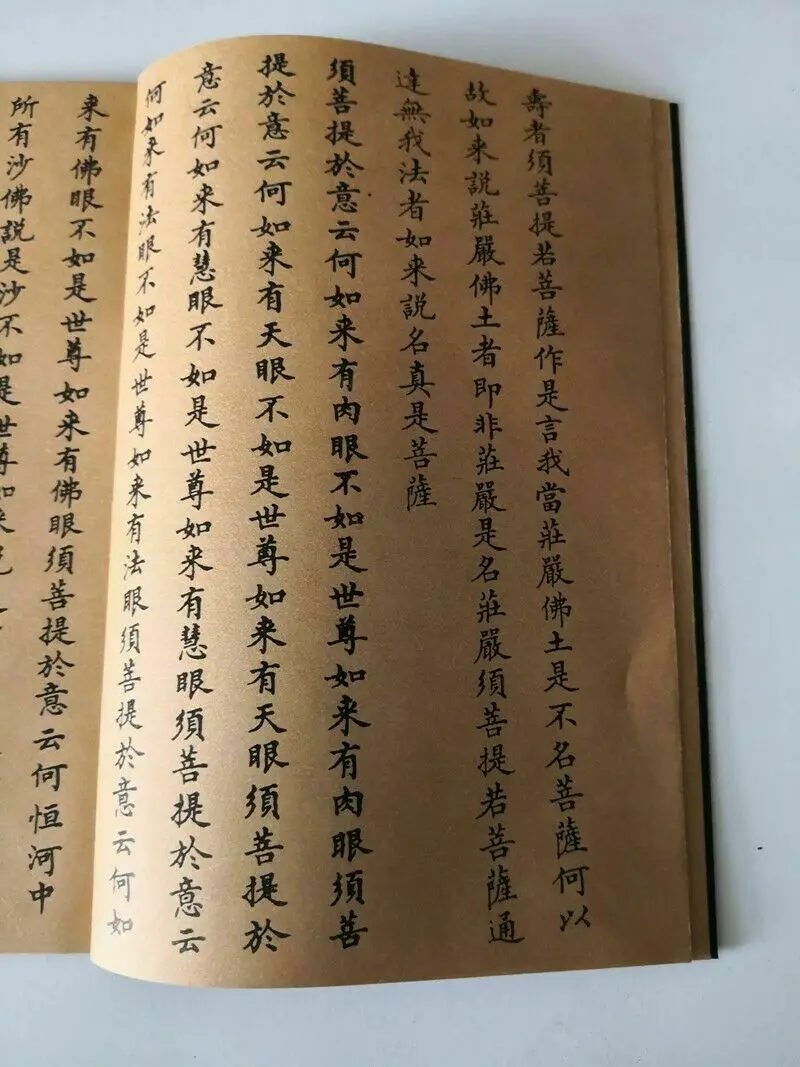 壽者須菩提若菩薩作是言我當莊嚴佛土是不名菩薩何以
故如来説莊嚴佛土者即非莊嚴是名莊嚴須菩提若菩薩通
達無我法者如来説名真是菩薩
須菩提於意云何如来有肉眼不如是世尊如来有肉眼須菩
提於意云何如来有天眼不如是世尊如来有天眼須菩提於
意云何如来有慧眼不如是世尊如来有慧眼須菩提於意云
何如来有法眼不如是世尊如来有法眼須菩提於意云何如
来有佛眼不如是世尊如来有佛眼須菩提於意云何恒河中
所有沙佛説是沙不如是世尊如来